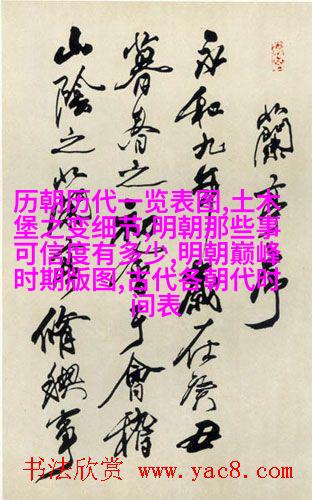 蘭亭序
永和九年歲在癸丑
暮春之初會于會稽
山陰之蘭亭脩禊事
历朝历代一览表图,土木
堡之变细节,明朝那些事
可信度有多少,明朝巅峰
时期版图,古代各朝代时
间表
书法欣赏 www.yac8.com